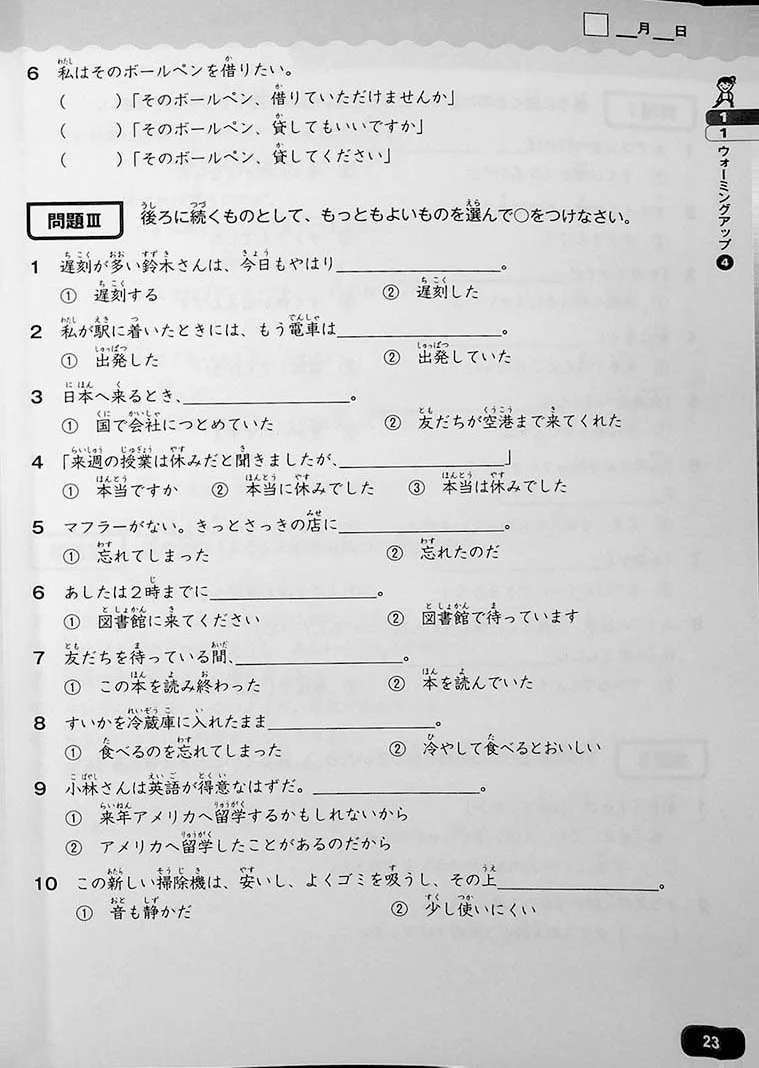 __月__日
6 私はそのボールペンを借りたい。
(　　)「そのボールペン、借りていただけませんか」
(　　)「そのボールペン、貸してもいいですか」
(　　)「そのボールペン、貸してください」
1
1 ウォーミングアップ ❹
問題Ⅲ 後ろに続くものとして、もっともよいものを選んで○をつけなさい。
1 遅刻が多い鈴木さんは、今日もやはり____________。
① 遅刻する ② 遅刻した
2 私が駅に着いたときには、もう電車は____________。
① 出発した ② 出発していた
3 日本へ来るとき、____________。
① 国で会社につとめていた ② 友だちが空港まで来てくれた
4 「来週の授業は休みだと聞きましたが、____________」
① 本当ですか ② 本当に休みでした ③ 本当は休みでした
5 マフラーがない。きっとさっきの店に____________。
① 忘れてしまった ② 忘れたのだ
6 あしたは2時までに____________。
① 図書館に来てください ② 図書館で待っています
7 友だちを待っている間、____________。
① この本を読み終わった ② 本を読んでいた
8 すいかを冷蔵庫に入れたまま____________。
① 食べるのを忘れてしまった ② 冷やして食べるとおいしい
9 小林さんは英語が得意なはずだ。____________。
① 来年アメリカへ留学するかもしれないから
② アメリカへ留学したことがあるのだから
10 この新しい掃除機は、安いし、よくゴミを吸うし、その上____________。
① 音も静かだ ② 少し使いにくい
23